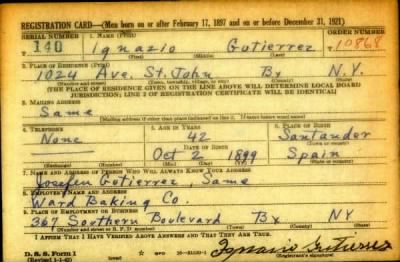 REGISTRATION CARD—(Men born on or after February 17, 1897 and on or before December 31, 1921)
SERIAL NUMBER 1. NAME (Print) ORDER NUMBER
140 Ignazio Gutierrez 10868
(First) (Middle) (Last)
2. PLACE OF RESIDENCE (Print)
1024 Ave. St. John Bx N.Y.
(Number and street) (Town, township, village, or city) (County) (State)
(THE PLACE OF RESIDENCE GIVEN ON THE LINE ABOVE WILL DETERMINE LOCAL BOARD
JURISDICTION; LINE 2 OF REGISTRATION CERTIFICATE WILL BE IDENTICAL)
3. MAILING ADDRESS
Same
(Mailing address if other than place indicated on line 2. If same insert word same)
4. TELEPHONE 5. AGE IN YEARS 6. PLACE OF BIRTH
None 42 Santander
DATE OF BIRTH (Town or county)
Oct 2 1899 Spain
(Exchange) (Number) (Mo.) (Day) (Yr.) (State or country)
7. NAME AND ADDRESS OF PERSON WHO WILL ALWAYS KNOW YOUR ADDRESS
Gutierrez, Same
8. EMPLOYER'S NAME AND ADDRESS
Ward Baking Co.
9. PLACE OF EMPLOYMENT OR BUSINESS
367 Southern Boulevard Bx NY
(Number and street or R. F. D. number) (Town) (County) (State)
I AFFIRM THAT I HAVE VERIFIED ABOVE ANSWERS AND THAT THEY ARE TRUE.
D. S. S. Form 1
(Revised 1-1-42) GPO 16—21630-1
Ignazio Gutierrez
(Registrant's signature)